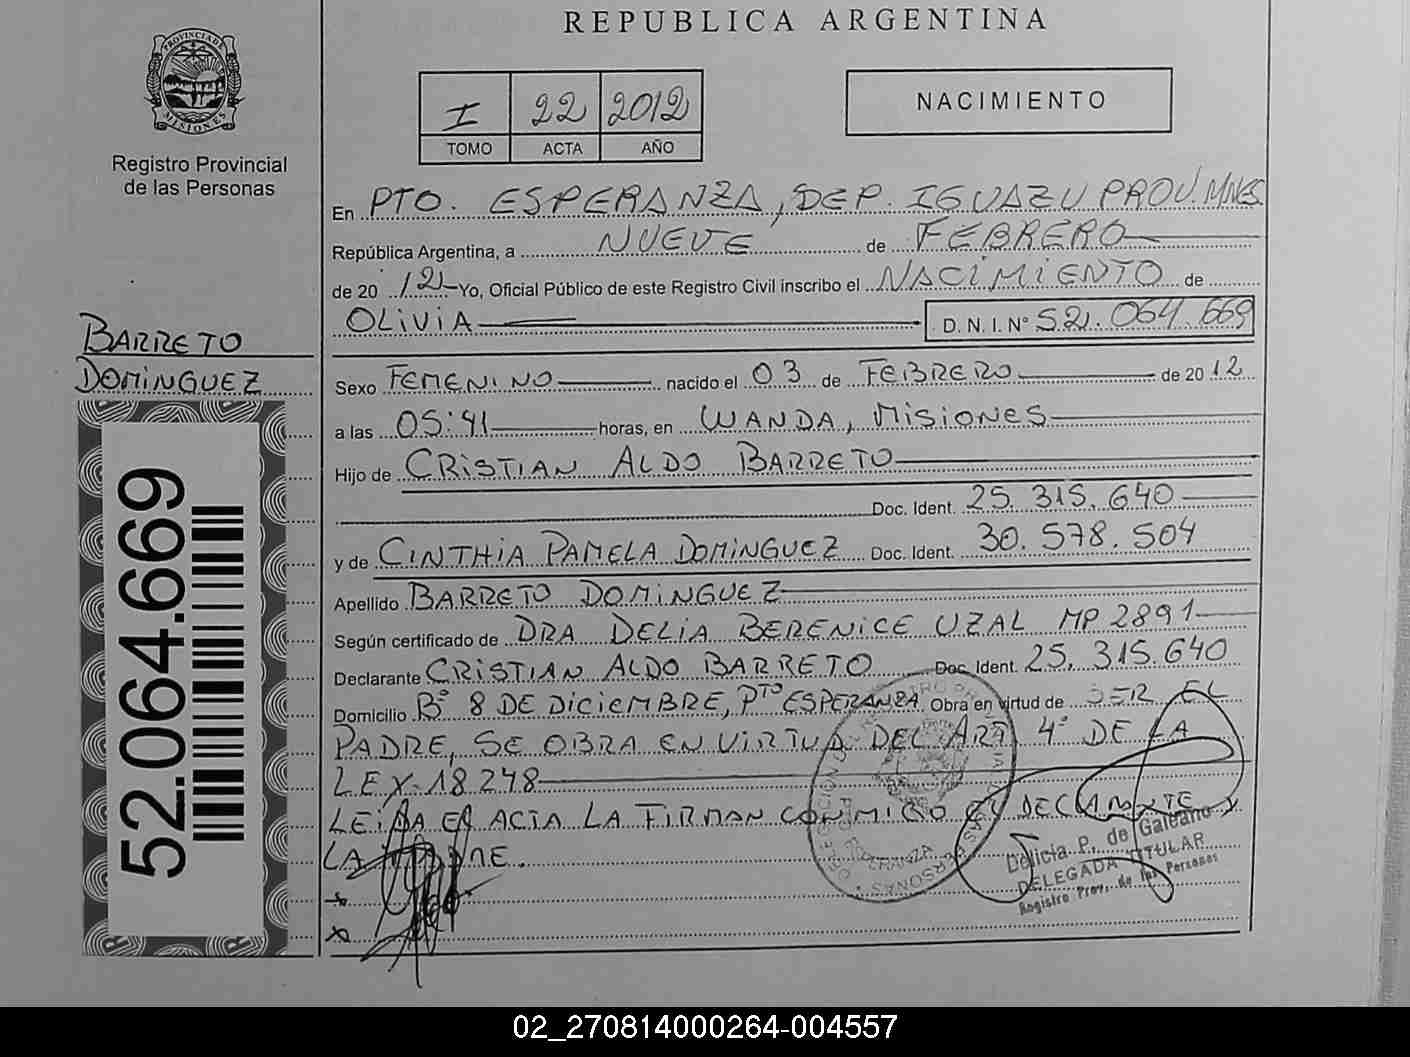 REPUBLICA ARGENTINA
PROVINCIA DE
MISIONES
Registro Provincial
de las Personas
I 22 2012
TOMO ACTA AÑO
NACIMIENTO
En PTO. ESPERANZA, DEP. IGUAZU PROV. MNES
República Argentina, a NUEVE de FEBRERO
de 20 12 Yo, Oficial Público de este Registro Civil inscribo el NACIMIENTO de
OLIVIA D. N. I. N° 52. 064. 669
BARRETO
DOMINGUEZ
52.064.669
Sexo FEMENINO nacido el 03 de FEBRERO de 20 12
a las 05:41 horas, en WANDA, MISIONES
Hijo de CRISTIAN ALDO BARRETO
Doc. Ident. 25. 315. 640
y de CINTHIA PAMELA DOMINGUEZ Doc. Ident. 30. 578. 504
Apellido BARRETO DOMINGUEZ
Según certificado de DRA DELIA BERENICE UZAL MP 2891
Declarante CRISTIAN ALDO BARRETO Doc. Ident. 25. 315. 640
Domicilio B° 8 DE DICIEMBRE, PTO ESPERANZA Obra en virtud de SER EL
PADRE, SE OBRA EN VIRTUD DEL ART 4° DE LA
LEY 18248
LEIDA EL ACTA LA FIRMAN CONMIGO EL DECLARANTE Y
LA MADRE.
x
x
Delicia P. de Galeano
DELEGADA TITULAR
Registro Prov. de las Personas
02_270814000264-004557